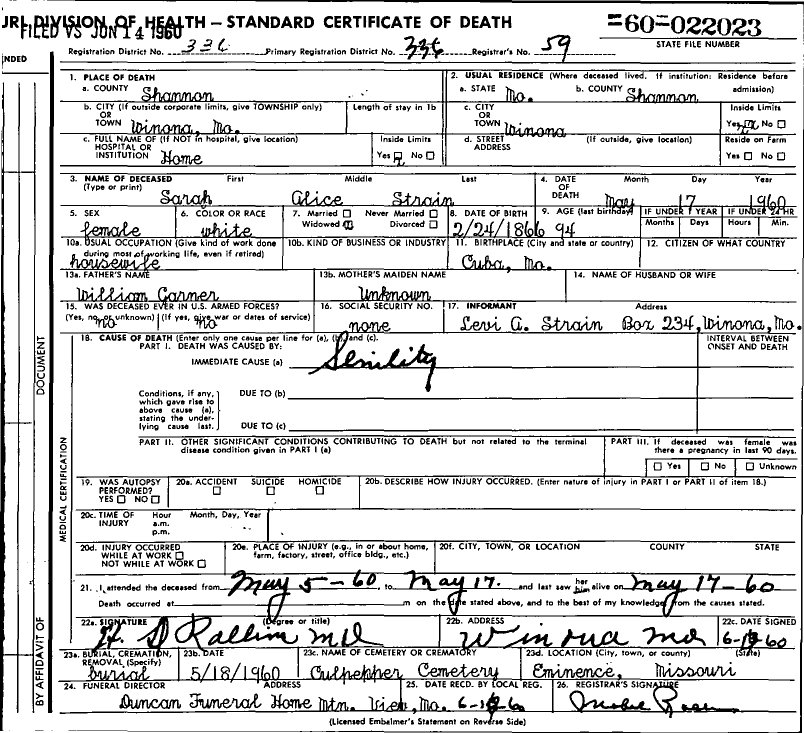 URI DIVISION OF HEALTH — STANDARD CERTIFICATE OF DEATH
=60-022023
FILED VS JUN 14 1960
STATE FILE NUMBER
Registration District No. 336 Primary Registration District No. 336 Registrar's No. 59
NDED
1. PLACE OF DEATH
a. COUNTY Shannon
2. USUAL RESIDENCE (Where deceased lived. If institution: Residence before admission)
a. STATE Mo. b. COUNTY Shannon
b. CITY (If outside corporate limits, give TOWNSHIP only) OR TOWN Winona, Mo.
Length of stay in 1b
c. CITY OR TOWN Winona
Inside Limits
Yes ☒ No ☐
c. FULL NAME OF (If NOT in hospital, give location) HOSPITAL OR INSTITUTION Home
Inside Limits
Yes ☒ No ☐
d. STREET ADDRESS (If outside, give location)
Reside on Farm
Yes ☐ No ☐
3. NAME OF DECEASED (Type or print) First Middle Last
Sarah Alice Strain
4. DATE OF DEATH Month Day Year
May 17 1960
5. SEX
female
6. COLOR OR RACE
white
7. Married ☐ Never Married ☐
Widowed ☒ Divorced ☐
8. DATE OF BIRTH
2/24/1866
9. AGE (last birthday)
94
IF UNDER 1 YEAR
Months Days
IF UNDER 24 HR
Hours Min.
10a. USUAL OCCUPATION (Give kind of work done during most of working life, even if retired)
housewife
10b. KIND OF BUSINESS OR INDUSTRY
11. BIRTHPLACE (City and state or country)
Cuba, Mo.
12. CITIZEN OF WHAT COUNTRY
13a. FATHER'S NAME
William Garner
13b. MOTHER'S MAIDEN NAME
Unknown
14. NAME OF HUSBAND OR WIFE
15. WAS DECEASED EVER IN U.S. ARMED FORCES?
(Yes, no, or unknown) (If yes, give war or dates of service)
no no
16. SOCIAL SECURITY NO.
none
17. INFORMANT Address
Levi A. Strain Box 234, Winona, Mo.
18. CAUSE OF DEATH (Enter only one cause per line for (a), (b), and (c).
PART I. DEATH WAS CAUSED BY:
IMMEDIATE CAUSE (a) Senility
INTERVAL BETWEEN ONSET AND DEATH
Conditions, if any, which gave rise to above cause (a), stating the underlying cause last.
DUE TO (b)
DUE TO (c)
PART II. OTHER SIGNIFICANT CONDITIONS CONTRIBUTING TO DEATH but not related to the terminal disease condition given in PART I (a)
PART III. If deceased was female was there a pregnancy in last 90 days.
☐ Yes ☐ No ☐ Unknown
19. WAS AUTOPSY PERFORMED?
YES ☐ NO ☐
20a. ACCIDENT SUICIDE HOMICIDE
☐ ☐ ☐
20b. DESCRIBE HOW INJURY OCCURRED. (Enter nature of injury in PART I or PART II of item 18.)
20c. TIME OF INJURY Hour a.m. p.m. Month, Day, Year
20d. INJURY OCCURRED
WHILE AT WORK ☐
NOT WHILE AT WORK ☐
20e. PLACE OF INJURY (e.g., in or about home, farm, factory, street, office bldg., etc.)
20f. CITY, TOWN, OR LOCATION COUNTY STATE
21. I attended the deceased from May 5-60, to May 17. and last saw her him alive on May 17-60
Death occurred at m on the date stated above, and to the best of my knowledge from the causes stated.
22a. SIGNATURE (Degree or title)
MD
22b. ADDRESS
Winona Mo
22c. DATE SIGNED
23a. BURIAL, CREMATION, REMOVAL (Specify)
burial
23b. DATE
5/18/1960
23c. NAME OF CEMETERY OR CREMATORY
Culpepper Cemetery
23d. LOCATION (City, town, or county) (State)
Eminence, Missouri
24. FUNERAL DIRECTOR ADDRESS
Duncan Funeral Home Mtn. View, Mo.
25. DATE RECD. BY LOCAL REG.
26. REGISTRAR'S SIGNATURE
(Licensed Embalmer's Statement on Reverse Side)
DOCUMENT
MEDICAL CERTIFICATION
BY AFFIDAVIT OF